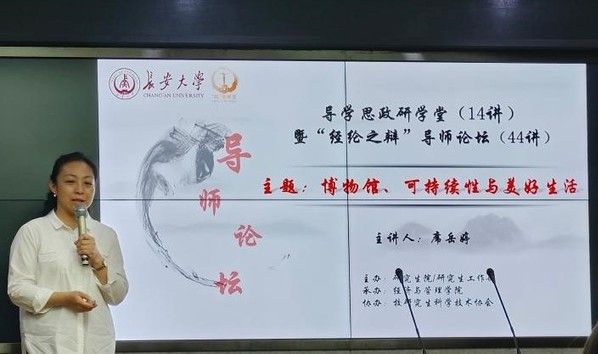 长安大学
CHANG'AN UNIVERSITY
导师论坛
导学思政研学堂（14讲）
暨“经纶之辩”导师论坛（44讲）
主题：博物馆、可持续性与美好生活
主讲人：席岳婷
主办：研究生院/研究生工作
承办：经济与管理学院
协办：校研究生科学技术协会